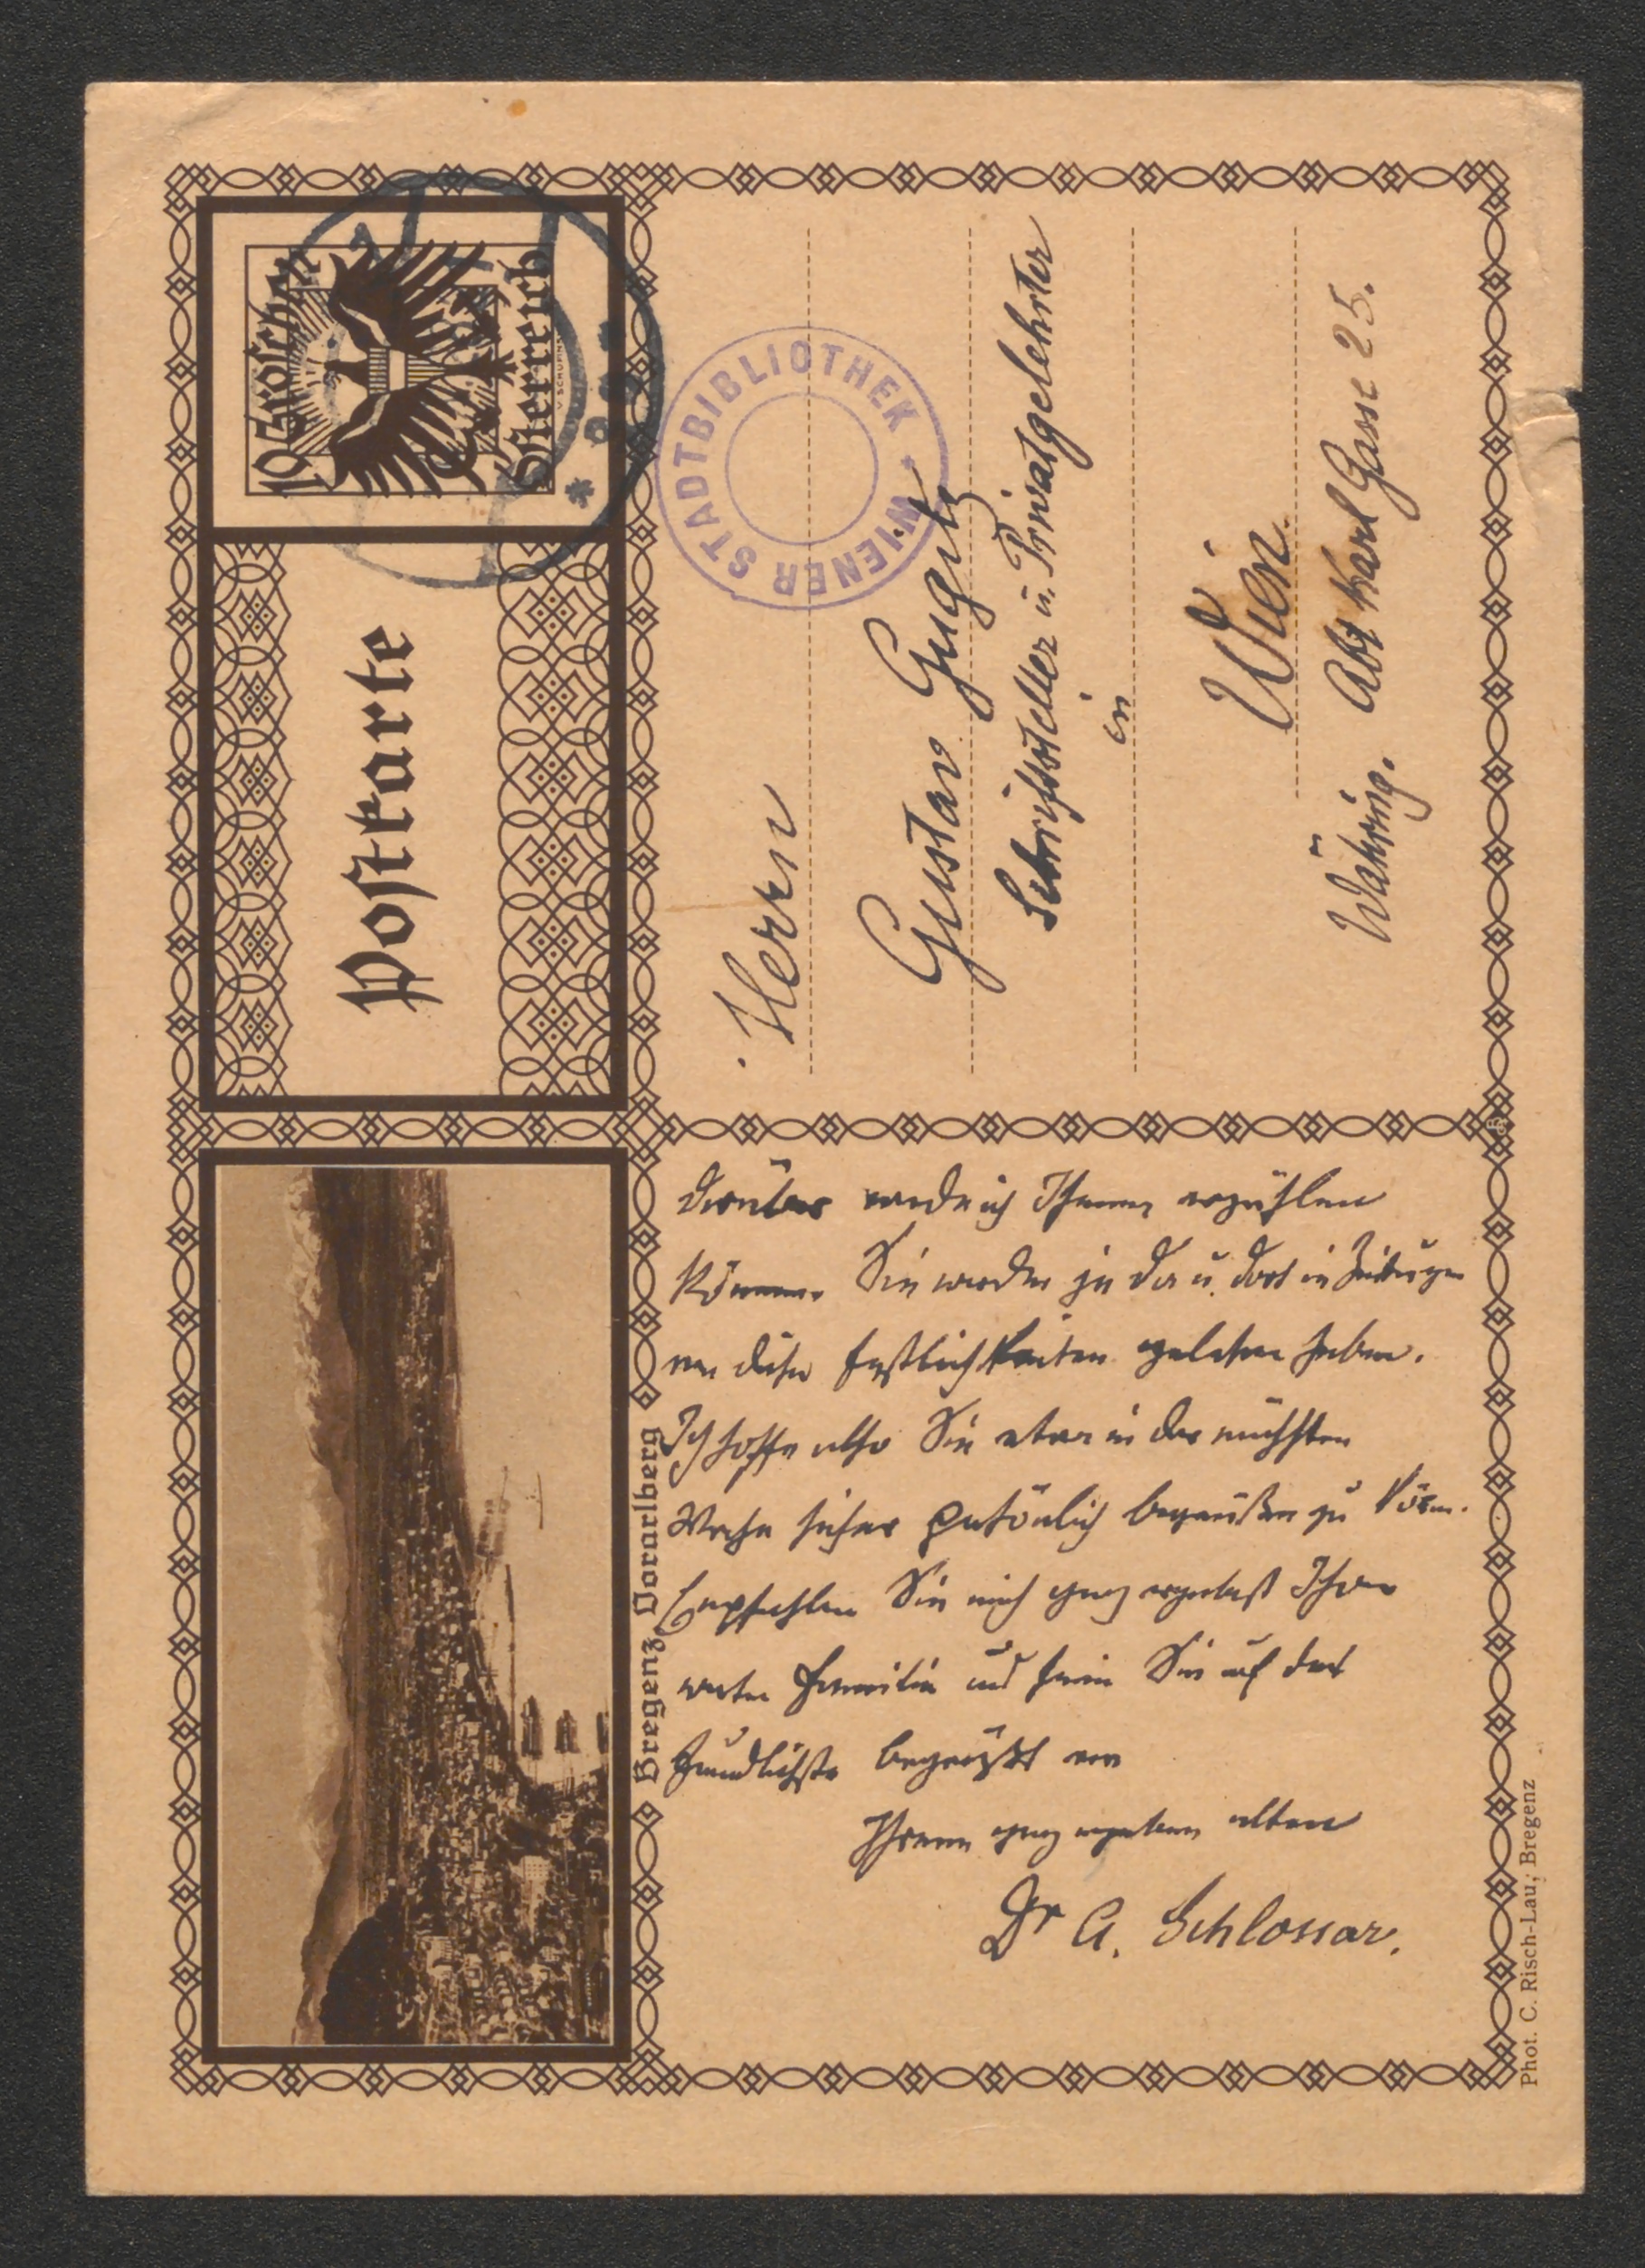 10 Groschen
Österreich
Postkarte
WIENER STADTBIBLIOTHEK
Herrn
Gustav Gugitz
Schriftsteller u. Privatgelehrter
in
Wien.
Währing. Abt Karl Gasse 25.
Bregenz Vorarlberg
darüber werde ich Ihnen erzählen
können. Sie werden ja da u. dort in Zeitungen
von diesen Festlichkeiten gelesen haben.
Ich hoffe also Sie etwa in der nächsten
Woche sicher persönlich begrüßen zu könn.
Empfehlen Sie mich ganz ergebenst Ihrer
werten Familie und seien Sie auf das
freundlichste begrüßt von
Ihrem ganz ergebenen alten
Dr A. Schlossar.
Phot. C. Risch-Lau, Bregenz